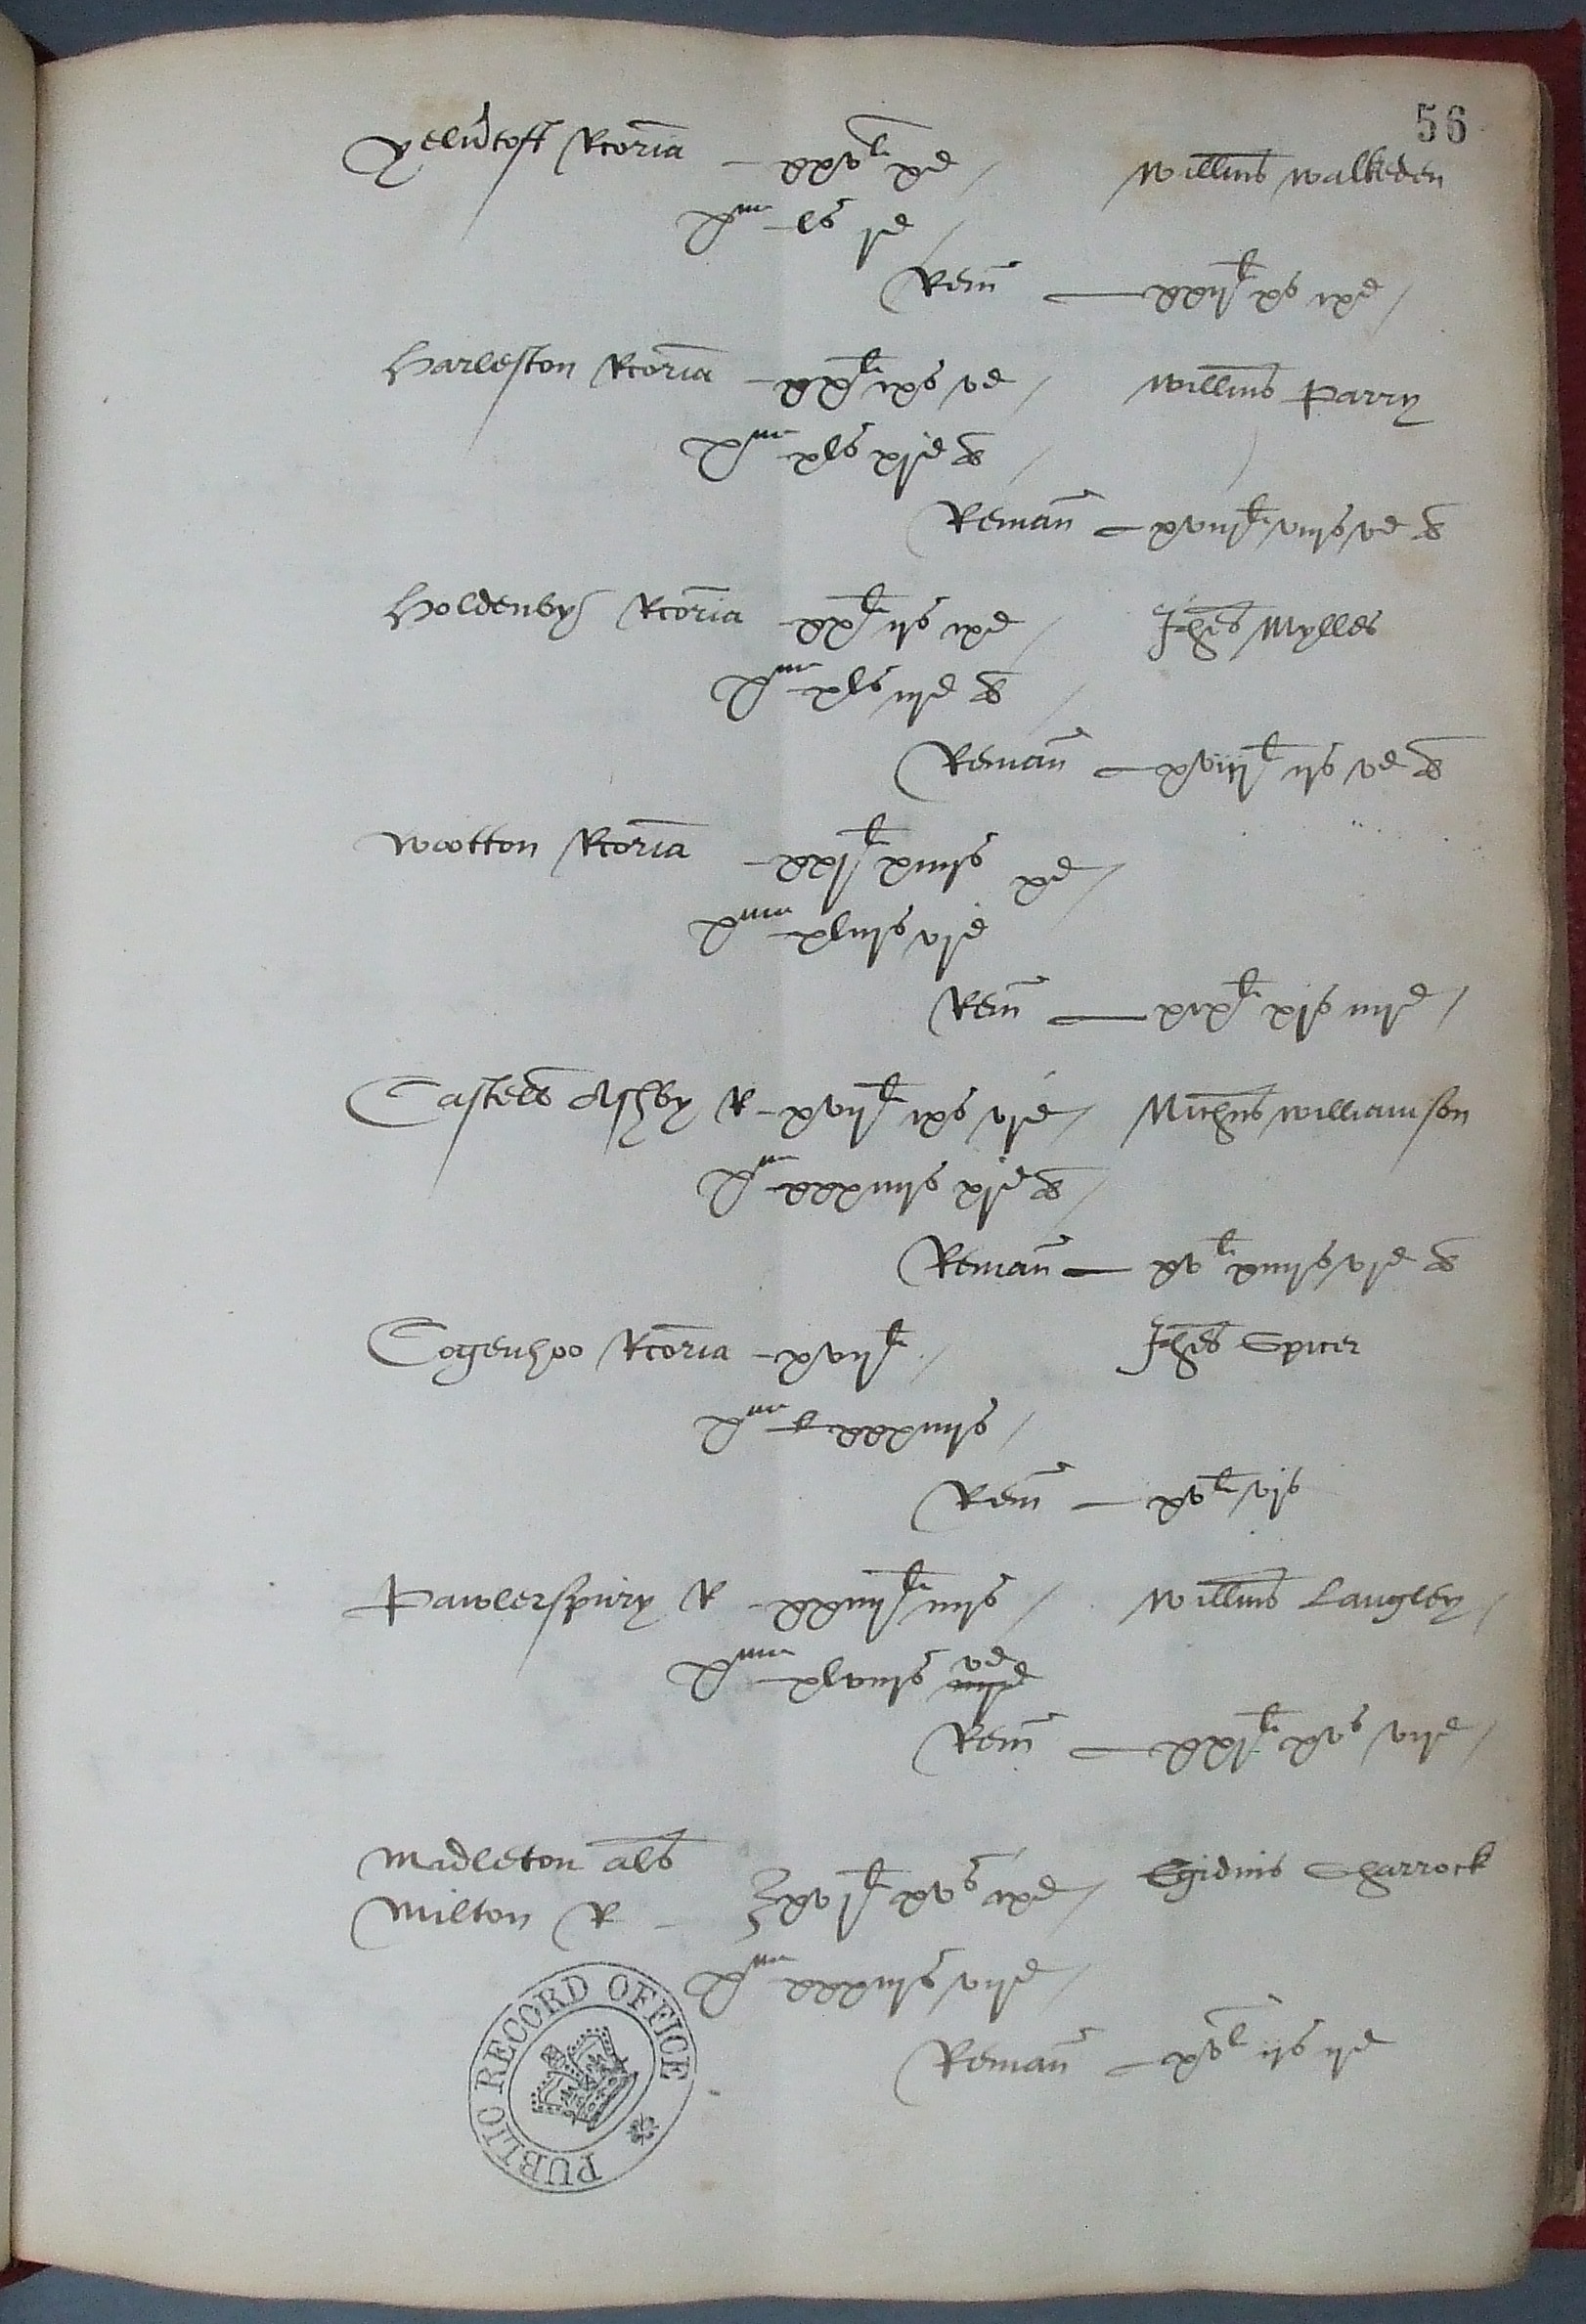 56
Yelv̄toft Rcoria — xxvli xd / Willm̄s Walkeden
xma — ls jd /
Rem̄ — xxijli xs ixd /
Harleston Rcoria — xxli ixs vd / Willm̄s Parry
xma — xls xjd ob /
Remañ — xviijli viijs vd ob
Holdenby Rcoria — xxli ijs ixd / Jhēs Mylles
xma — xls iijd ob /
Remañ — xviijli ijs vd ob
Wootton Rcoria — xxjli xiiijs xd /
xma — xliijs vjd
Rem̄ — xixli xjs iiijd /
Castell Ashby R — xvijli ixs vjd / Michus Williamson
xma — xxxiiijs xjd ob /
Remañ — xvli xiiijs vjd ob
Cogenhoo Rcoria — xvijli / Jhēs Spicer
xma — xxxiiijs /
Rem̄ — xvli vjs
Pawlerspury R — xxiiijli iiijs / Willm̄s Langley /
xma — xlviijs iiijd vd
Rem̄ — xxjli xvs vijd /
Midleton als
Milton R — xvjli xvs ixd / Egidius Sharrock
xma — xxxiijs vijd /
Remañ — xvli ijs ijd
PUBLIC RECORD OFFICE